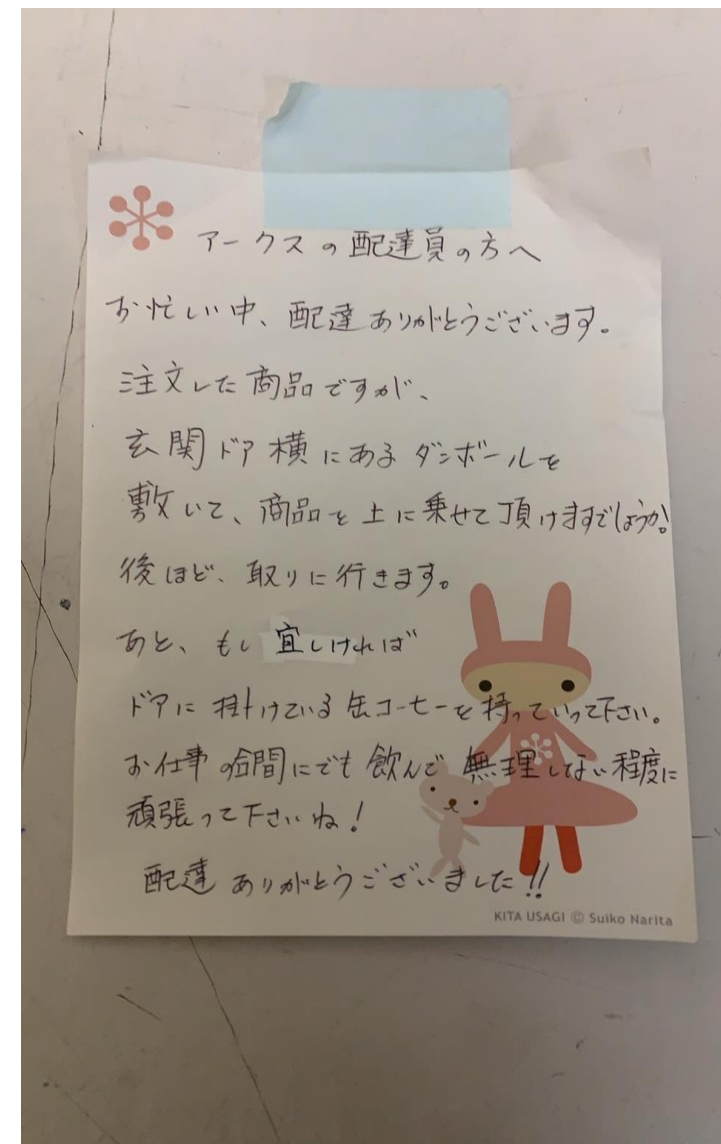 アークスの配達員の方へ
お忙しい中、配達ありがとうございます。
注文した商品ですが、
玄関ドア横にあるダンボールを
敷いて、商品を上に乗せて頂けますでしょうか。
後ほど、取りに行きます。
あと、もし宜しければ
ドアに掛けている缶コーヒーを持っていって下さい。
お仕事の合間にでも飲んで無理しない程度に
頑張って下さいね!
配達ありがとうございました!!
KITA USAGI © Suiko Narita